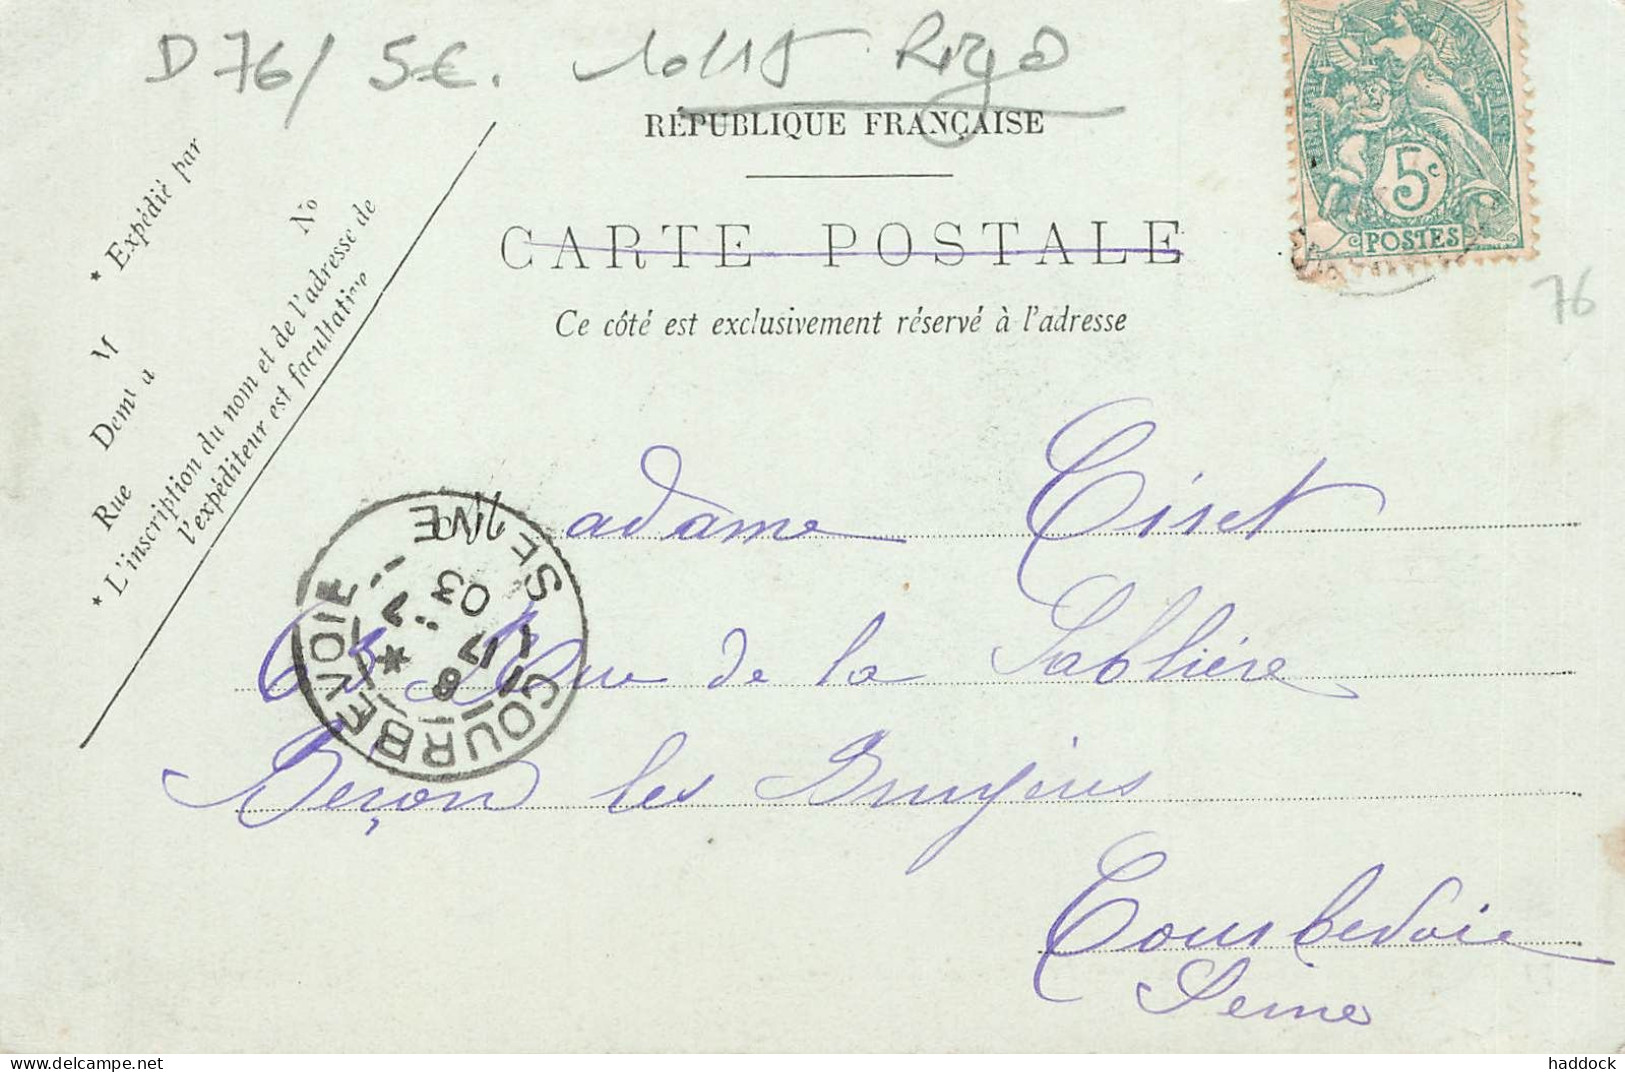 D 76/ 5€.
RÉPUBLIQUE FRANÇAISE
CARTE POSTALE
Ce côté est exclusivement réservé à l'adresse
5c
POSTES
76
* Expédié par
M
No
Demt à
Rue
* L'inscription du nom et de l'adresse de
l'expéditeur est facultative
COURBEVOIE
SEINE
8
17
03
adame Tiset
63 Rue de la Sablière
Beçon les Bruyères
Courbevoie
Seine
www.delcampe.net
haddock